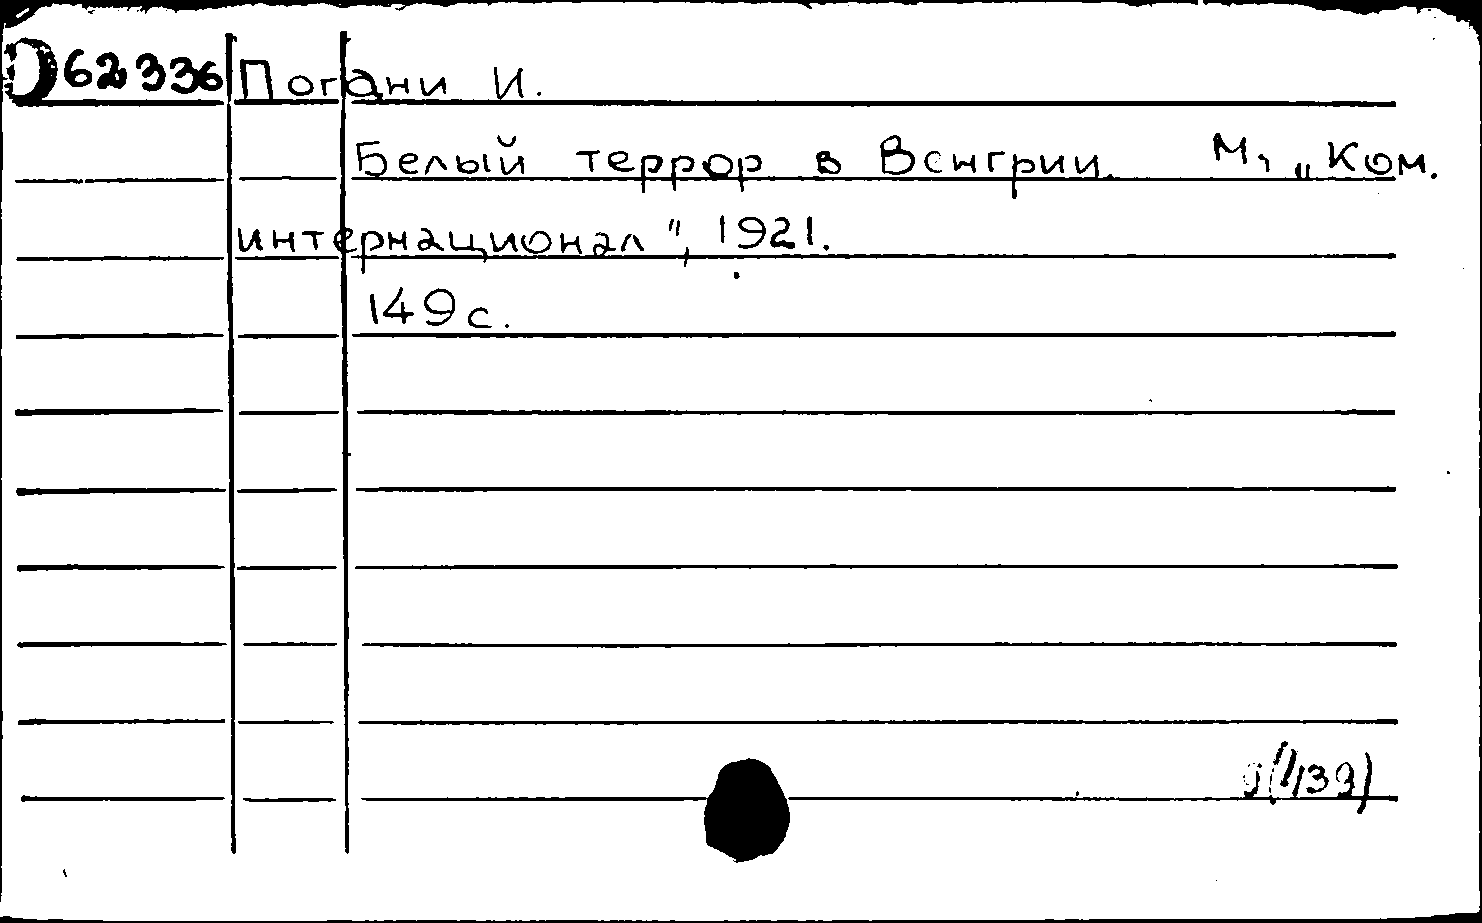 D62336 Погани И.
Белый террор в Венгрии. М, „Ком.
интернационал", 1921.
149 с.
9(439)